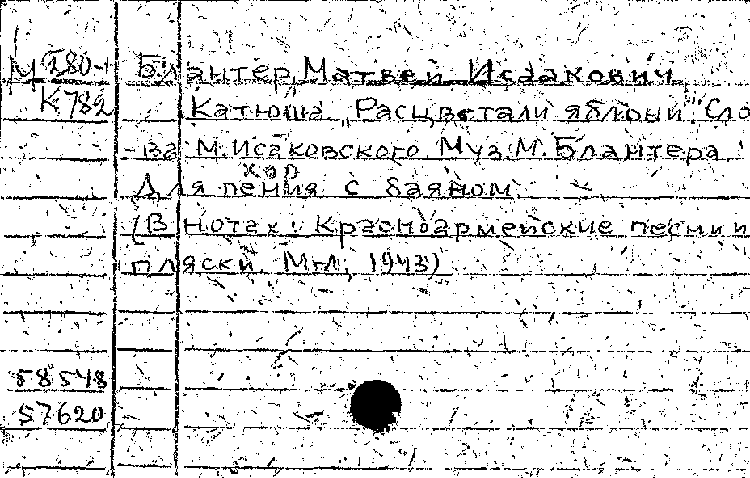 М 280-1 Блантер, Матвей Исаакович
К 782 Катюша „Расцветали яблони". Сло-
ва М. Исаковского Муз. М. Блантера
хор
Для пения с баяном
(В нотах: Красноармейские песни и
пляски. М-Л, 1943)
58548
57620